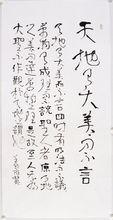 天地有大美而不言
天地有大美而不言四時有明法而不議
萬物有成理而不說聖人者原天地
之美而達萬物之理是故至人無為
大聖不作觀於天地之謂也